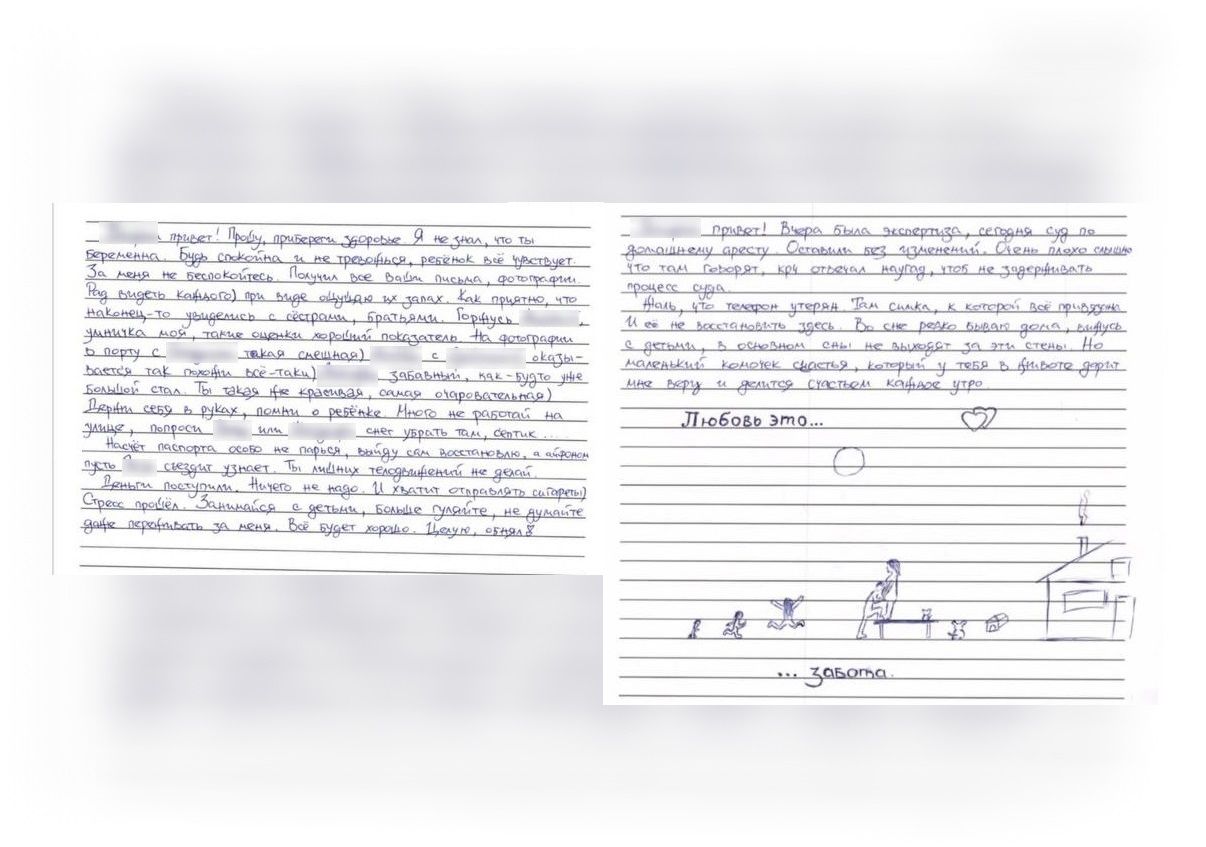 привет! Прошу, прибереги здоровье. Я не знал, что ты
беременна. Будь спокойна и не тревожься, ребёнок всё чувствует.
За меня не беспокойтесь. Получил все ваши письма, фотографии.
Рад видеть каждого) при виде ощущаю их запах. Как приятно, что
наконец-то увиделись с сёстрами, братьями. Горжусь
умничка моя, такие оценки хороший показатель. На фотографии
в порту с такая смешная) с оказы-
вается так похожи всё-таки) забавный, как-будто уже
большой стал. Ты такая же красивая, самая очаровательная)
Держи себя в руках, помни о ребёнке. Много не работай на
улице, попроси или снег убрать там, септик ....
Насчёт паспорта особо не парься, выйду сам восстановлю, а айфоном
пусть съездит узнает. Ты лишних телодвижений не делай.
Деньги поступили. Ничего не надо. И хватит отправлять сигареты)
Стресс прошёл. Занимайся с детьми, больше гуляйте, не думайте
даже переживать за меня. Всё будет хорошо. Целую, обнял
привет! Вчера была экспертиза, сегодня суд по
домашнему аресту. Оставили без изменений. Очень плохо слышно
что там говорят, крч отвечал наугад, чтоб не задерживать
процесс суда.
Жаль, что телефон утерян. Там симка, к которой всё привязано
И её не восстановить здесь. Во сне редко бываю дома, вижусь
с детьми, в основном сны не выходят за эти стены. Но
маленький комочек счастья, который у тебя в животе дарит
мне веру и делится счастьем каждое утро.
Любовь это...
... забота.